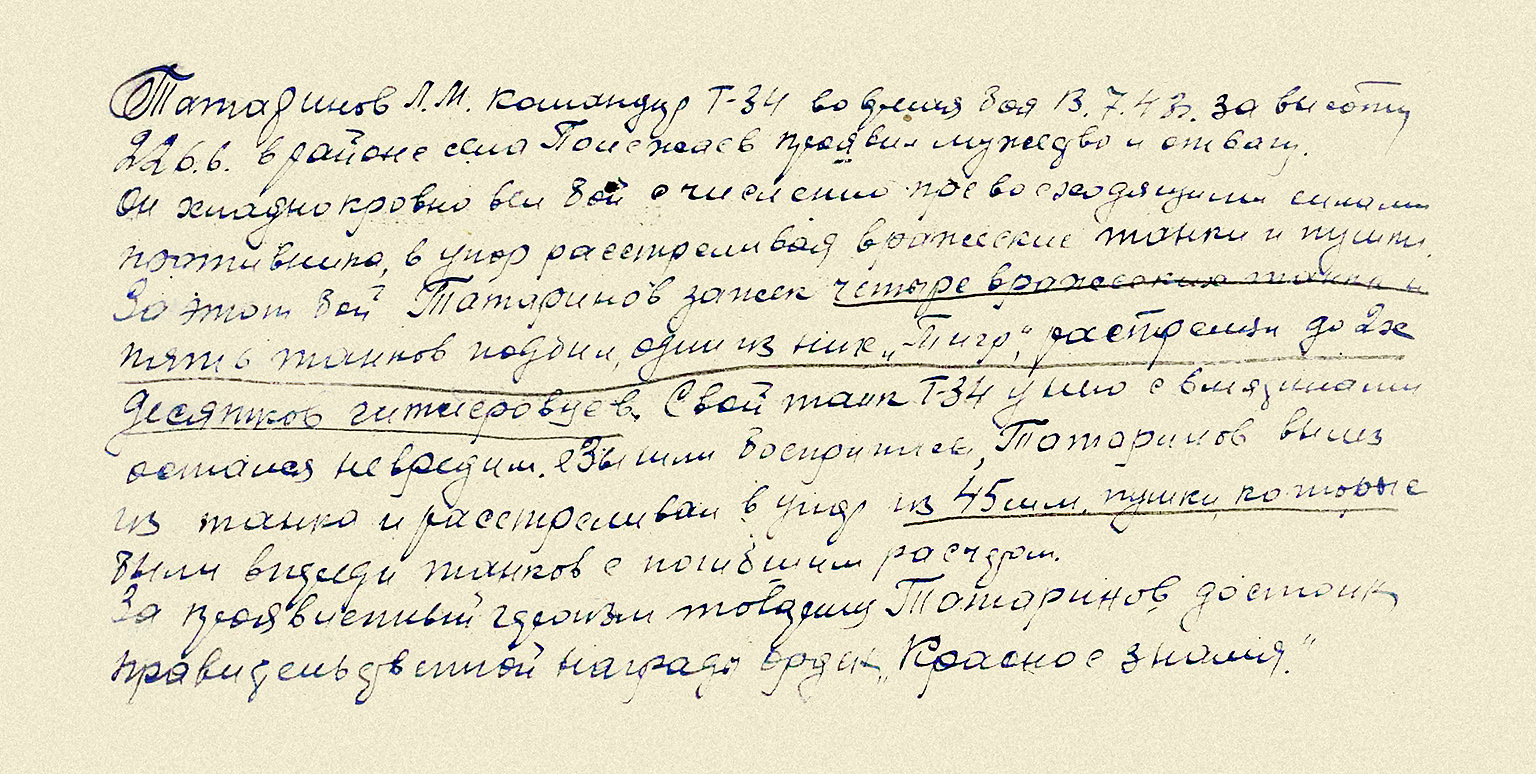 Татаринов Л.М. командир Т-34 во время боя 13.7.43г. за высоту
226.6. в районе села Полежаев проявил мужество и отвагу.
Он хладнокровно вел бой с численно превосходящими силами
противника, в упор расстреливая вражеские танки и пушки.
За этот бой Татаринов зажег четыре вражеских танка и
пять танков подбил, один из них „Тигр", расстрелял до 2х
десятков гитлеровцев. Свой танк Т-34 умело
остался невредим. боеприпасы, Татаринов вылез
из танка и расстреливал в упор из 45мм. пушки, которые
были впереди танков с погибшим расчетом.
За проявленный героизм товарищ Татаринов достоин
правительственной награды орден „Красное знамя."